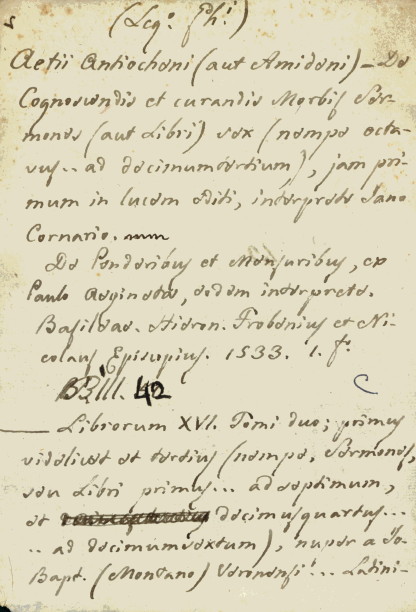 (Leg.º Ph.¹)
Aetii Antiocheni (aut Amideni) – De
Cognoscendis et curandis Morbis Ser-
mones (aut Libri) sex (nempe octa-
vus.. ad decimumtertium), jam pri-
mum in lucem editi, interprete Jano
Cornario.
De Ponderibus et Mensuribus, ex
Paulo Aegineta, eodem interprete.
Basileae. Hieron. Frobenius et Ni-
colaus Episcopius. 1533. 1. fº.
42
Librorum XVI. Tomi duo; primus
videlicet et tertius (nempe, Sermones,
seu Libri primus... ad septimum,
et decimusquartus...
.. ad decimumsextum), nuper a Jo.
Bapt. (Montano) Veronensi... Latini-